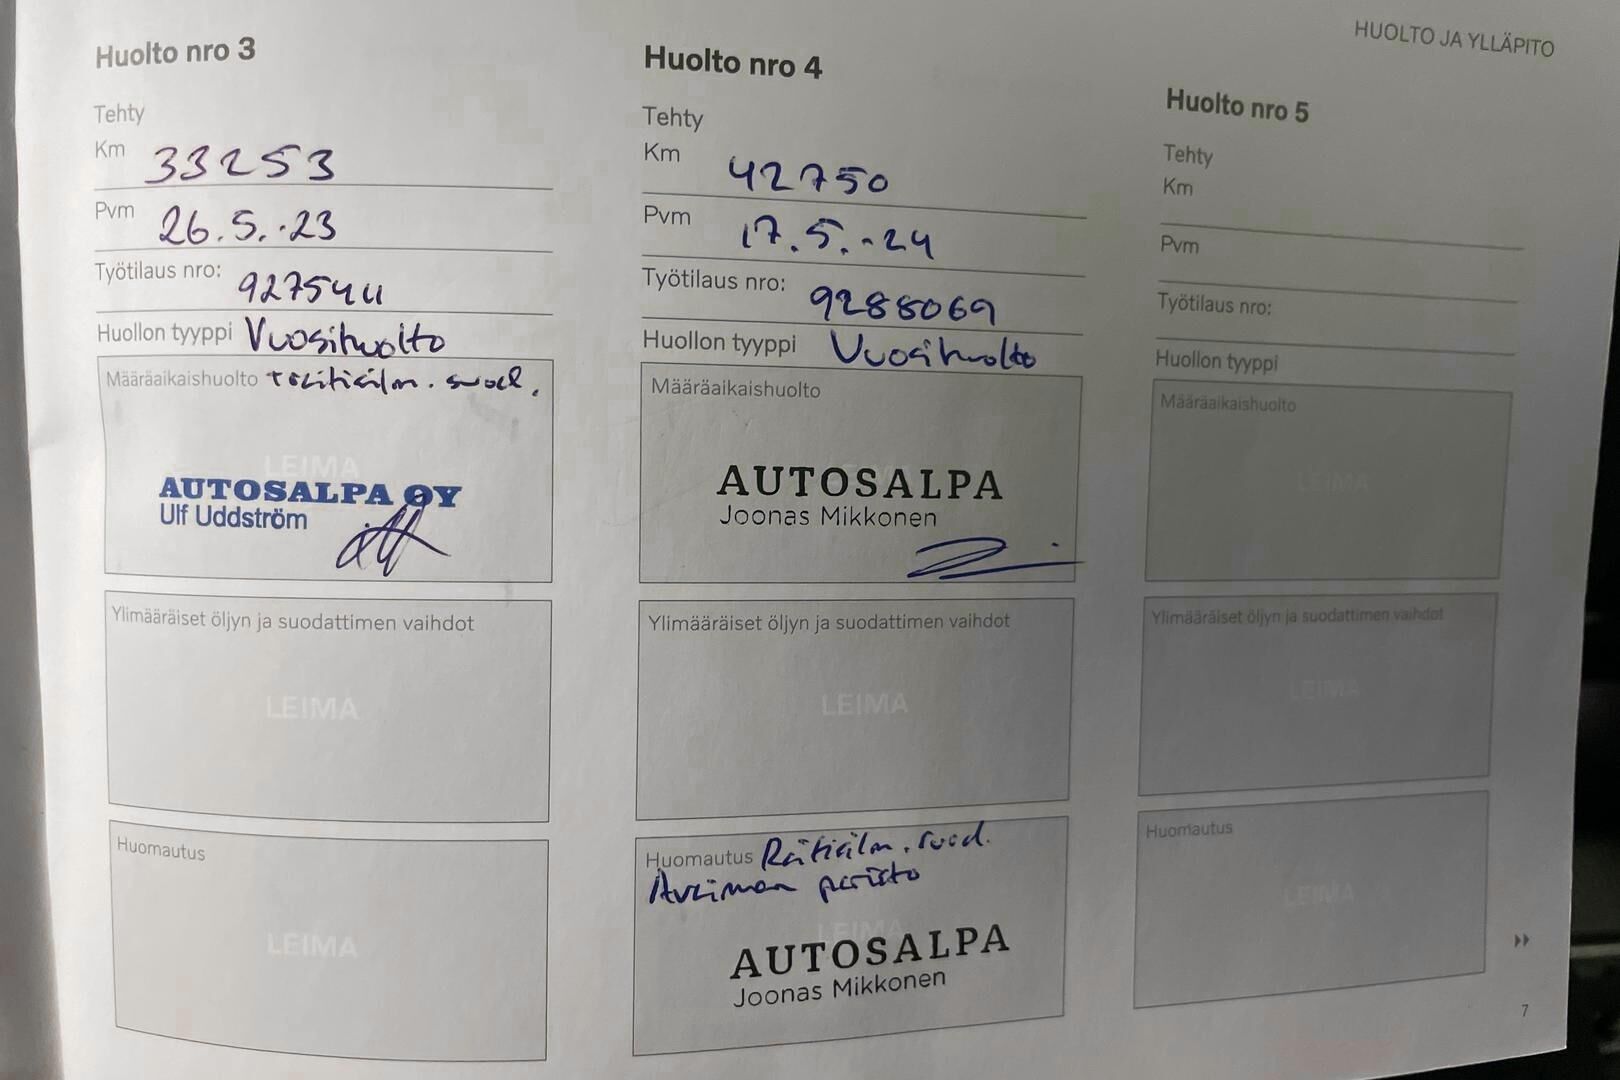 HUOLTO JA YLLÄPITO
Huolto nro 3
Tehty
Km 33253
Pvm 26.5.-23
Työtilaus nro: 9275411
Huollon tyyppi Vuosihuolto
Määräaikaishuolto + raitisilm. suod.
LEIMA
AUTOSALPA OY
Ulf Uddström
Ylimääräiset öljyn ja suodattimen vaihdot
LEIMA
Huomautus
LEIMA
Huolto nro 4
Tehty
Km 42750
Pvm 17.5.-24
Työtilaus nro: 9288069
Huollon tyyppi Vuosihuolto
Määräaikaishuolto
AUTOSALPA
Joonas Mikkonen
Ylimääräiset öljyn ja suodattimen vaihdot
LEIMA
Huomautus Raitisilm. suod.
Avaimen paristo
LEIMA
AUTOSALPA
Joonas Mikkonen
Huolto nro 5
Tehty
Km
Pvm
Työtilaus nro:
Huollon tyyppi
Määräaikaishuolto
LEIMA
Ylimääräiset öljyn ja suodattimen vaihdot
LEIMA
Huomautus
LEIMA
7